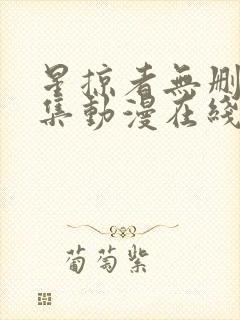 星掠者無刪
集動漫在綫
葡萄紫